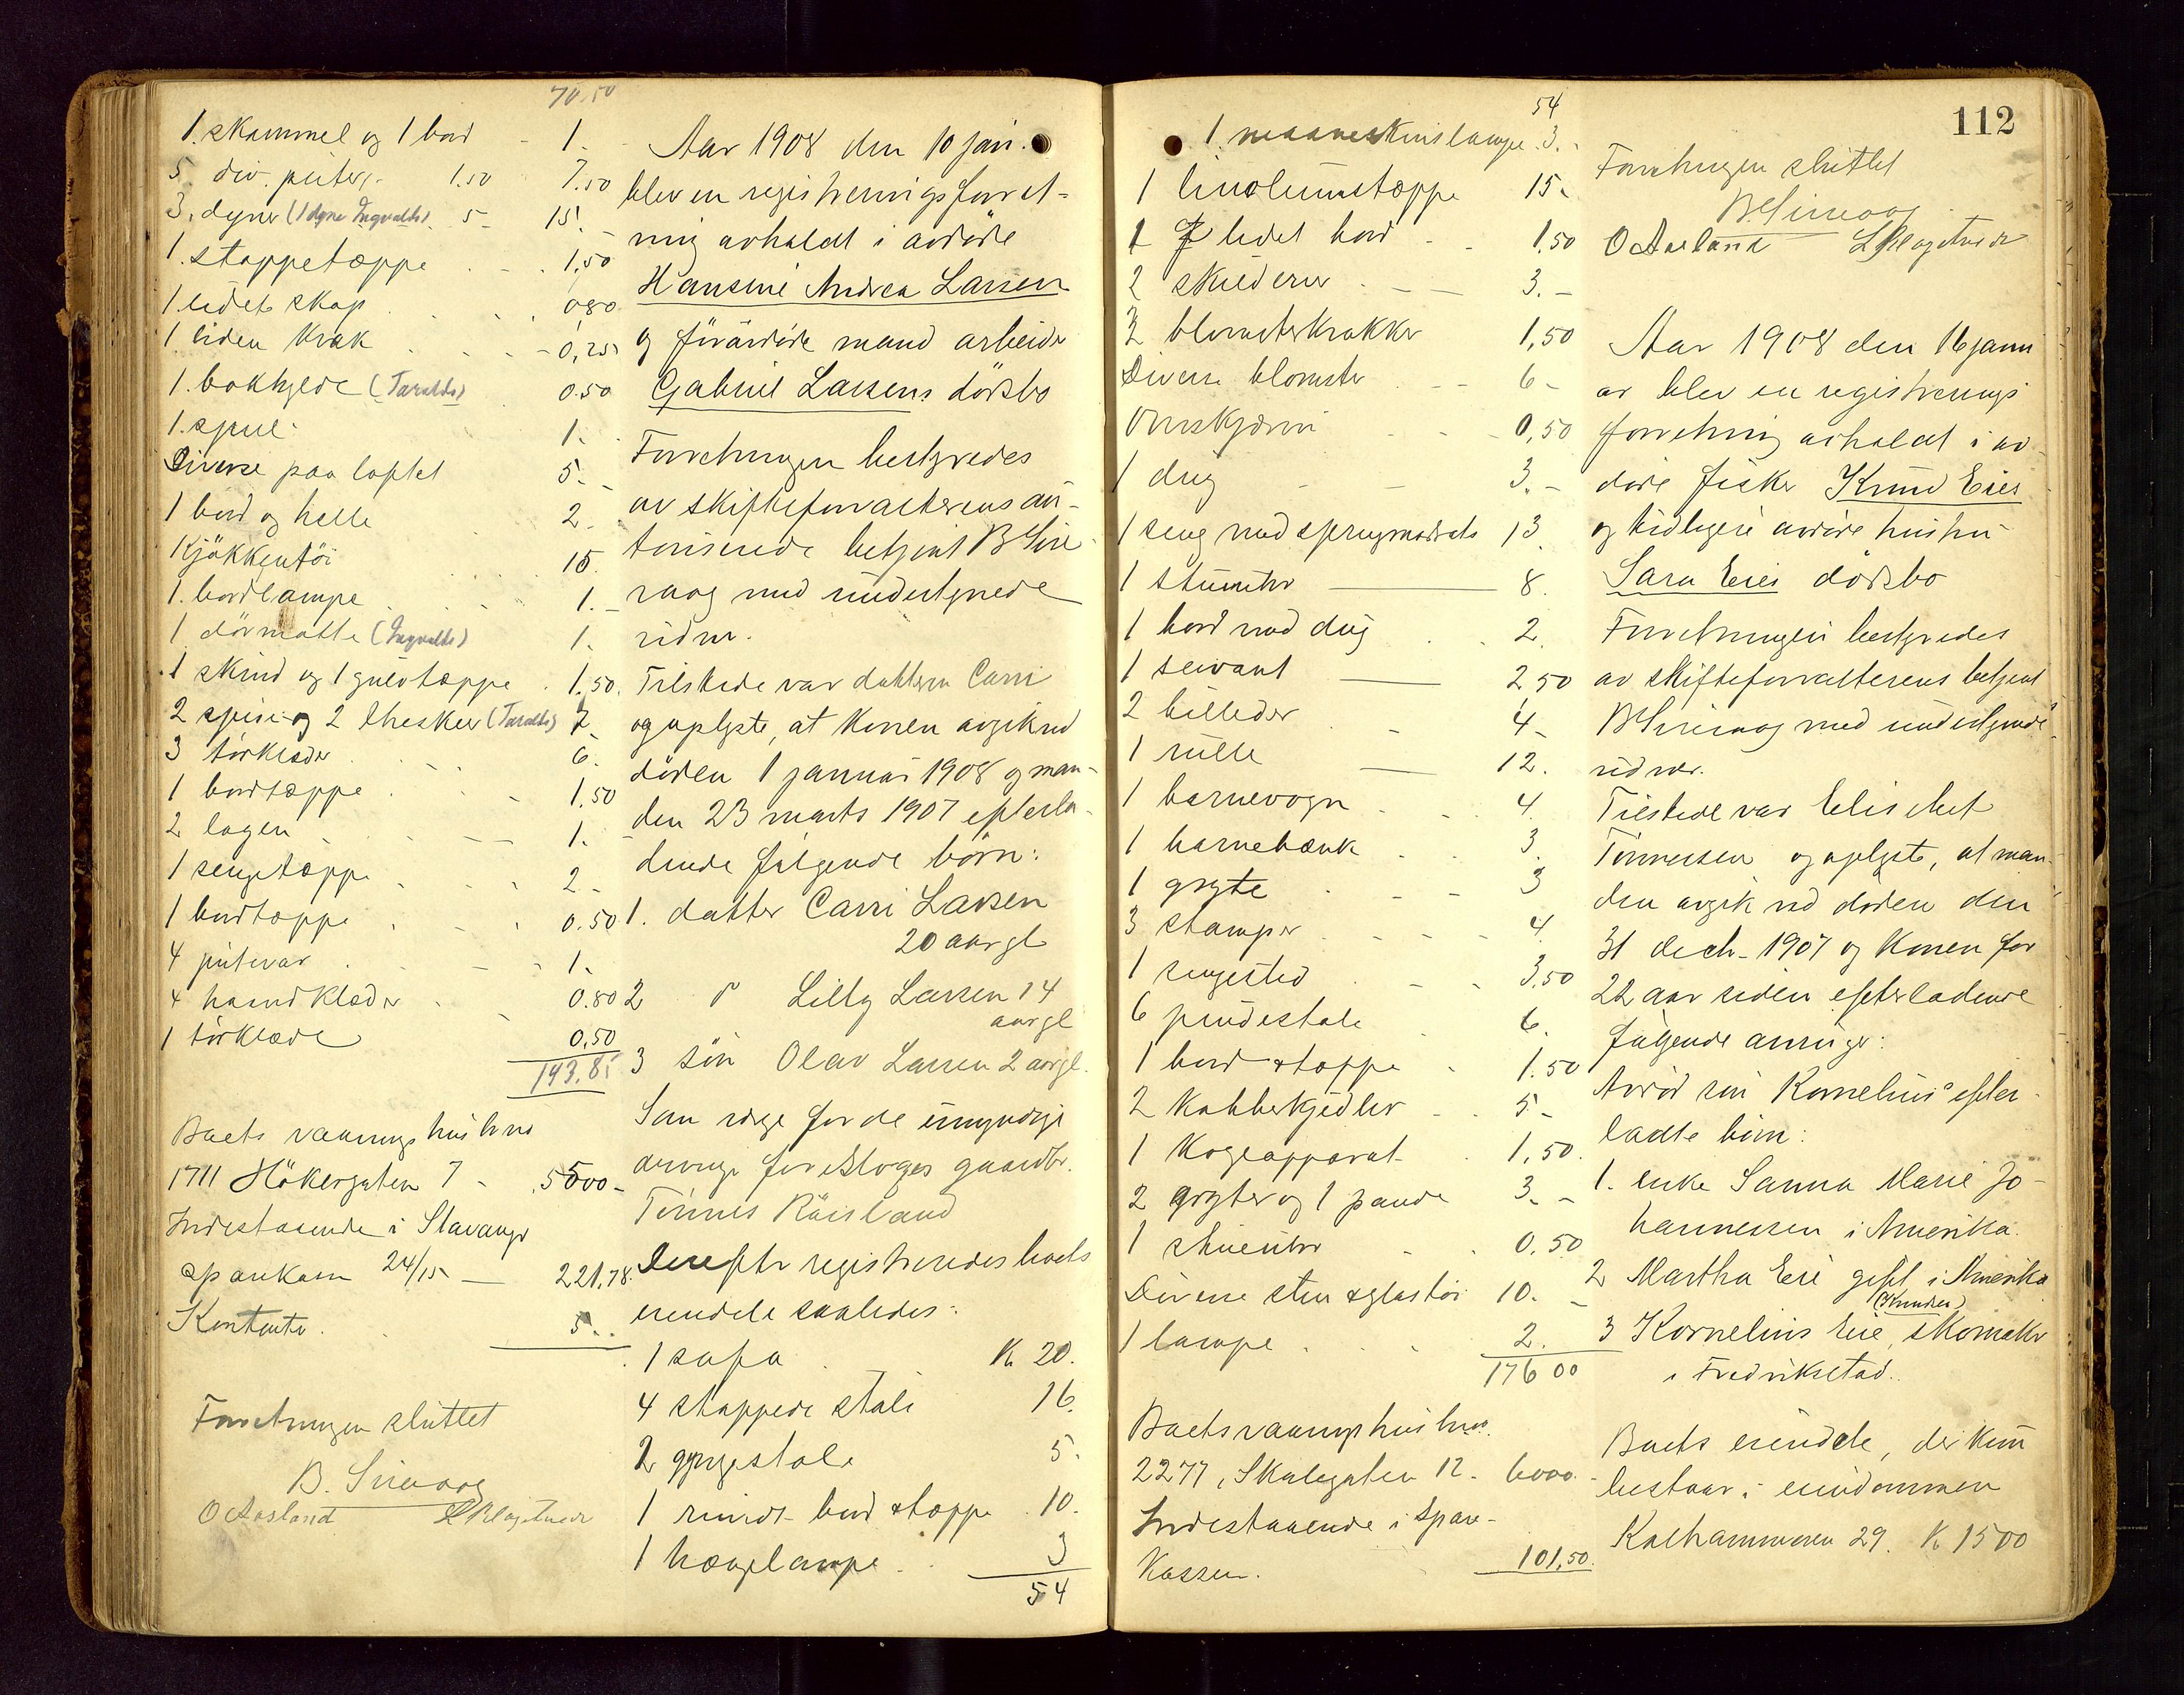 70.50
1. skammel og 1 bord - 1.
5 div. puter 1.50 7.50
3. dyner (1 dyne Ingvalds) 5 - 15.
1. stoppetæppe 1,50
1 lidet skap 0.80
1 liden krak 0,25
1. bokhylde (Taralds) 0.50
1. speil 1.
Diverse paa loftet 5.
1 bord og helle 2.
Kjökkentöi 15.
1. bordlampe 1.
1 dörmatte (Ingvalds) 1.
1 skind og 1 gulvtæppe 1.50.
2 spise- og 2 theskeer (Taralds) 7.
3 törklæder 6.
1 bordtæppe 1.50
2 lagen 1.
1 sengetæppe 2.
1 bordtæppe 0.50
4 putevar 1.
4 haandklæder 0.80
1 törklæde 0,50
193.85
Boets vaaningshus br no
1711 Hökergaten 7 - 5500 -
Indestaaende i Stavanger
sparekasse 24/15 - 221,78.
Kontanter 5..
Forretningen sluttet
B. Siraaog
O Aasland
Aar 1908 den 10 jan.
blev en registreringsforret-
ning avholdt i avdöde
Hansine Andrea Larsen
og föravdöde mand arbeider
Gabriel Larsens dödsbo
Forretningen bestyredes
av skifteforvalterens au-
toriserede betjent B Sire-
vaag med undertegnede
vidner.
Tilstede var datteren Carri
og oplyste, at konen avgik ved
döden 1 januar 1908 og man-
den 23 marts 1907 efterla-
dende fölgende börn:
1. datter Carri Larsen
20 aar gl
2 " Lilly Larsen 14
aar gl
3 sön Olav Larsen 2 aar gl.
Som verge for de umyndige
arvinge foresloges gaardbr.
Tönnes Röisland
Derefter registreredes boets
eiendele saaledes:
1 sofa K 20.
4 stoppede stole 16.
2 gyngestole 5.
1 rundt bord & tæppe 10.
1 hængelampe 3
54
112
54
1. maaneskinslampe 3.-
1 linoleumstæppe 15.
1 lidet bord 1.50
2 skilderier 3.-
3 blomsterkrakker 1,50
Diverse blomster 6-
Ovnskjærm 0,50
1 dug 3.-
1 seng med springmadrats 13.
1 stueuhr 8.
1 bord med dug 2.
1 servant 2,50
2 billeder 4-
1 rulle 12.
1 barnevogn 4.
1 barnebænk 3.
1 gryte 3
3 stamper 4.
1 sengested 3.50
6 pindestole 6.
1 bord & tæppe 1.50
2 kobberkjedler 5-
1 kogeapparat 1,50.
2 gryter og 1 pande 3.-
1 stueuhr 0.50
Diverse sten & glastöi 10.-
1 lampe 2.
176 00
Boets vaaningshus br no
2277, Skolegaten 12. 6000.-
Indestaaende i spare-
kassen. 101,50.
Forretningen sluttet
B Sirevaag
O Aasland
Aar 1908 den 16 janu
ar blev en registrerings
forretning avholdt i av
döde fisker Knud Eies
og tidligere avdöde hustru
Sara Eies dödsbo
Forretningen bestyredes
av skifteforvalterens betjent
B Sirevaag med undertegnede
vidner.
Tilstede var Elisabet
Tönnesen og oplyste, at man-
den avgik ved döden den
31 decbr. 1907 og konen for
22 aar siden efterladende
fölgende arvinger:
Avdöd sön Kornelius' efter-
ladte börn:
1. enke Sanna Marie Jo-
hannessen i Amerika.
2 Martha Eie gift i Amerika
(Knudsen)
3 Kornelius Eie, skomaker
i Fredrikstad.
Boets eiendele, der kun
bestaar i eiendommen
Kalhammeren 29. K 1500